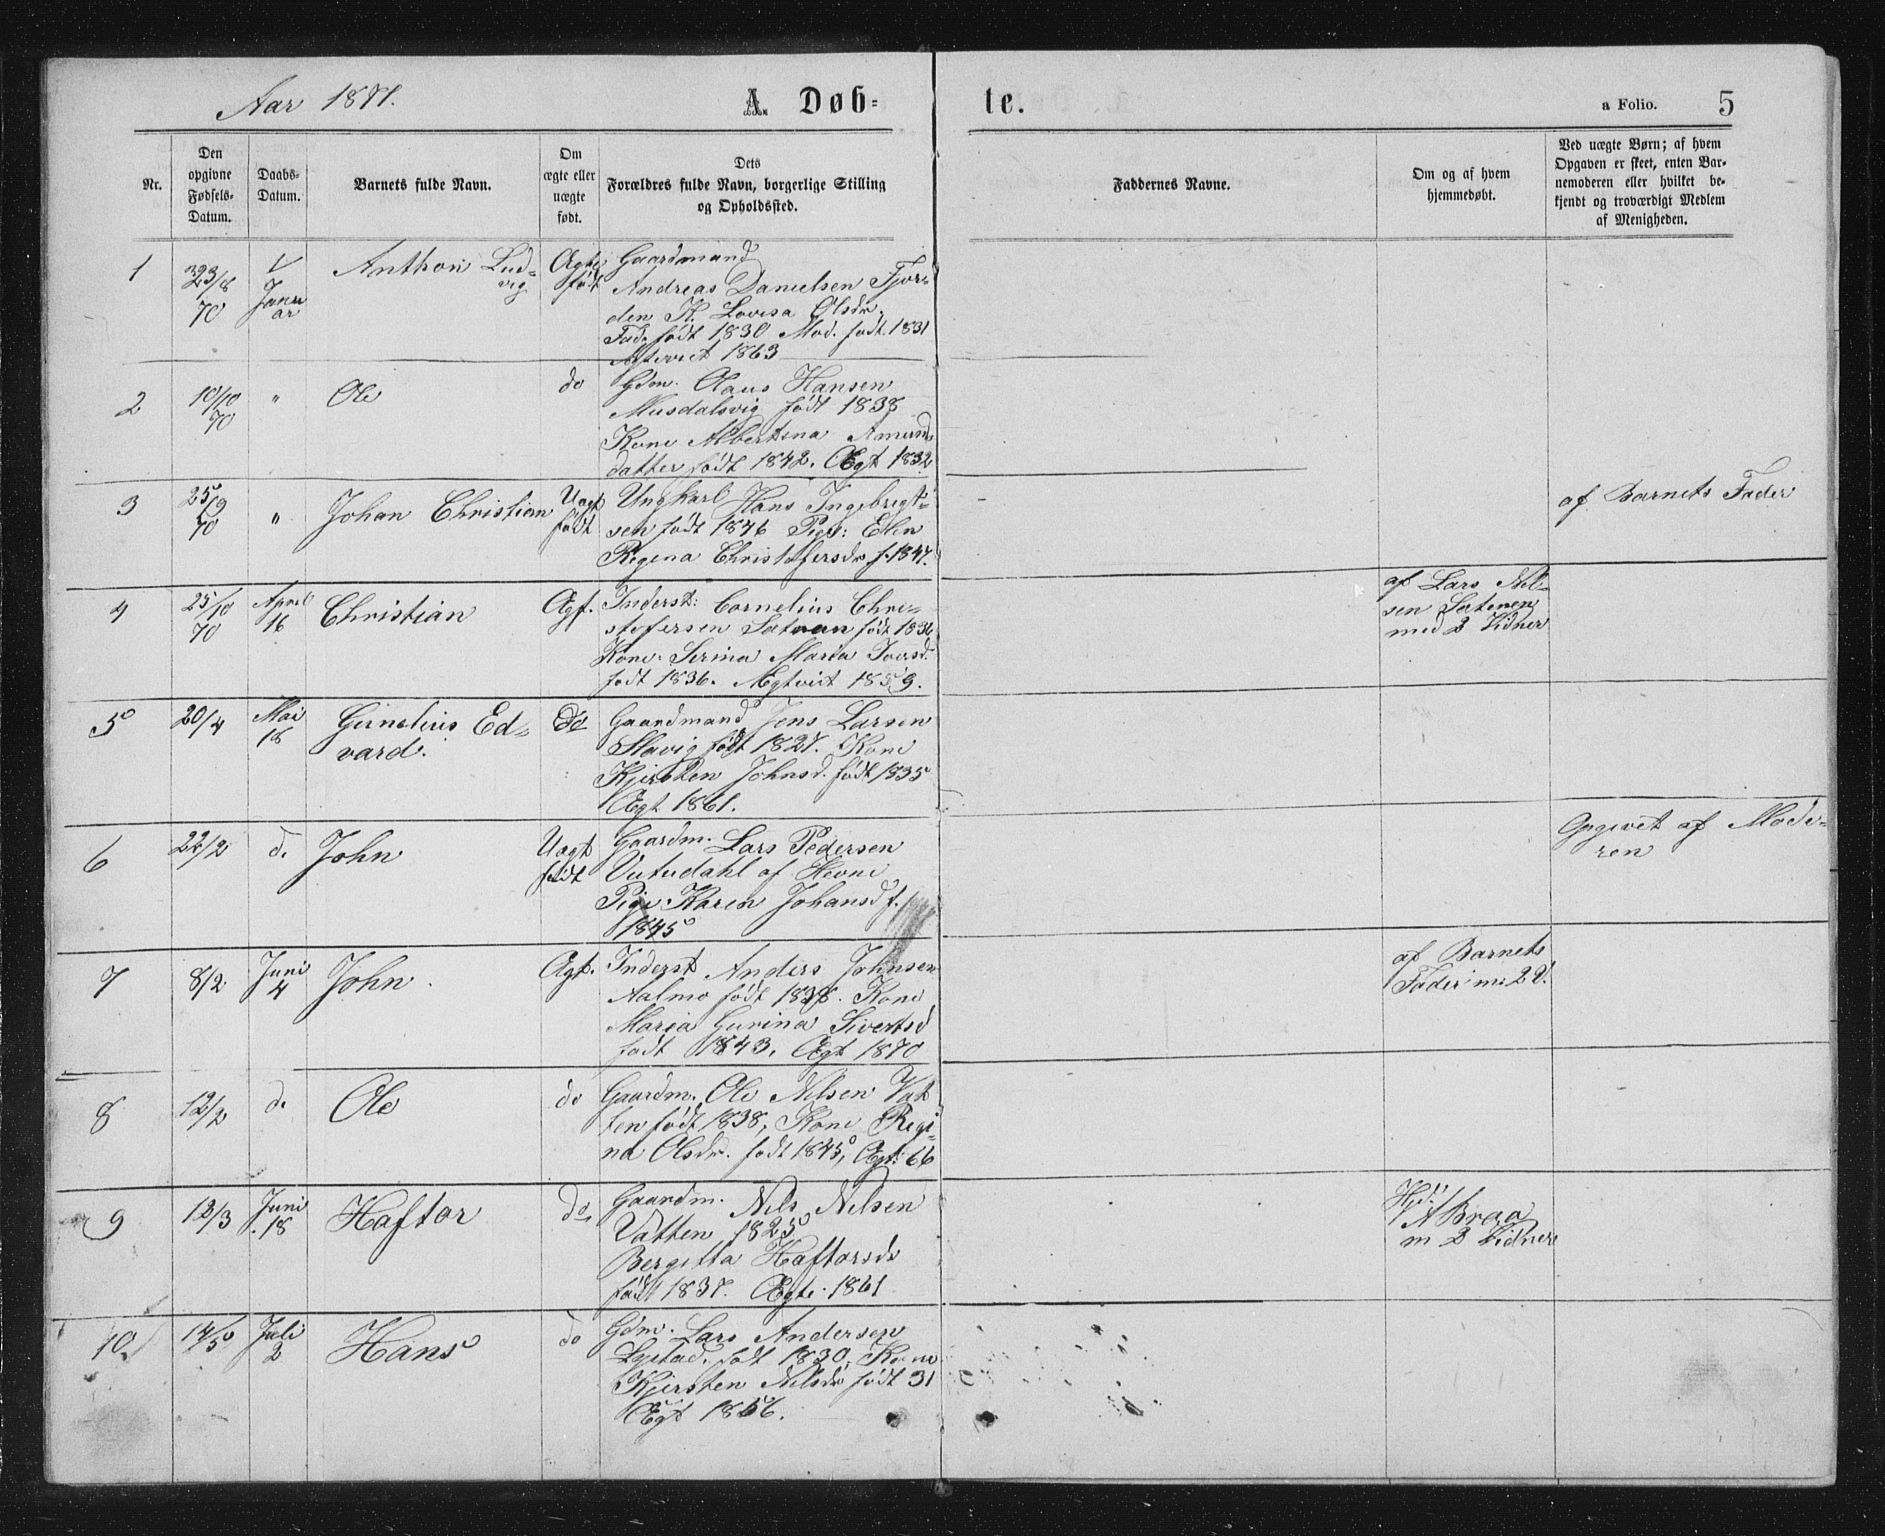 Aar 1871.
A. Døb-
te.
a Folio. 5
Nr.
Den
opgivne
Fødsels-
Datum.
Daabs-
Datum.
Barnets fulde Navn.
Om
ægte eller
uægte
født.
Dets
Forældres fulde Navn, borgerlige Stilling
og Opholdssted.
Faddernes Navne.
Om og af hvem
hjemmedøbt.
Ved uægte Børn; af hvem
Opgaven er skeet, enten Bar-
nemoderen eller hvilket be-
kjendt og troværdigt Medlem
af Menigheden.
1
23/8
70
1/
Janu
ar
Anthon Lud-
vig
Ægte
født
Gaardmand
Andreas Danielsen Fjor-
den K. Lovisa Olsdr.
Fad. født 1830 Mod. født 1831
1863
2
10/10
70
"
Ole
do
Gdm. Olaus Hansen
Musdalsvig født 1838
Kone Albertina
datter født 1842. Ægt 1832
3
25/9
70
"
Johan Christian
Uægt
født
Ungkarl Hans Ingebrigt-
sen født 1846 Pige: Elen
Regina Christofersdr f. 1847.
af Barnets Fader
4
25/10
70
April
16
Christian
Ægf.
Inderst: Cornelius Chri-
stofersen født 1836
Kone. Serina Maria
født 1836. Ægtviet 1859.
af Lars Nil-
sen
med 2 Vidner
5
20/4
Mai
18
Gunelius Ed-
vard.
do
Gaardmand Jens Larsen
Slavig født 1827. Kone
Kjersten Johnsd. født 1835
Ægt 1861.
6
22/2
d.
John
Uægt
født
Gaardm. Lars Pedersen
af Hevne
Pige Karen Johansd f.
1845
Opgivet af Mode-
ren
7
8/2
Juni
4
John.
Ægf.
Inderst Anders Johnsen
Aalmo født 1838. Kone
Maria Gurina Sivertsd
født 1843. Ægt 1870
af Barnets
Fader m. 2 V.
8
12/2
d.
Ole
do
Gaardm. Ole Nilsen Vat
ten født 1838, Kone Regi-
na Olsdr. født 1845, Ægt: 66
9
12/3
Juni
18
Haftor
do
Gaardm. Nils Nilsen
Vatten 1825
Bergitta Haftorsdr
født 1837. Ægte. 1861
Hjd.
A Braa
m 2 Vidner
10
14/5
Juli
2
Hans
do
Gdm. Lars Andersen
Lystad. født 1830. Kone
Kjersten Nilsdr født 31
Ægt 1856.